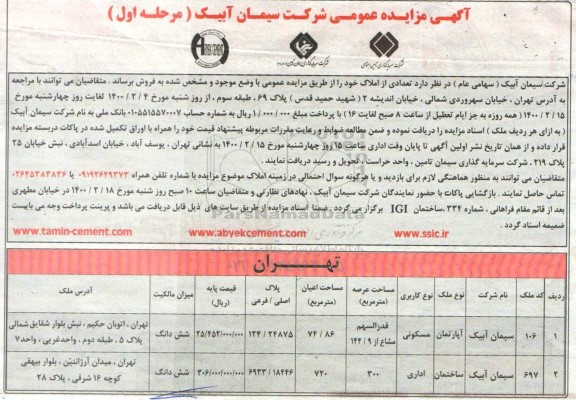 آگهی مزایده عمومی شرکت سیمان آبیک ( مرحله اول )
شرکت سیمان آبیک ( سهامی عام ) در نظر دارد تعدادی از املاک خود را از طریق مزایده عمومی با وضع موجود و مشخص شده به فروش برساند . متقاضیان می توانند با مراجعه
به آدرس تهران ، خیابان سهروردی شمالی ، خیابان اندیشه ۲ ( شهید حمید قدس ) پلاک ۶۹ ، طبقه سوم ، از روز شنبه مورخ ۱۴۰۰/۲/۴ لغایت روز چهارشنبه مورخ
۱۴۰۰/۲/۱۵ ( همه روزه به جز ایام تعطیل از ساعت ۸ صبح لغایت ۱۶ ) با پرداخت مبلغ ۱/۰۰۰/۰۰۰ ریال به شماره حساب ۰۱۰۵۵۱۵۵۷۰۰۷ بانک ملی به نام شرکت سیمان آبیک
( به ازای هر ردیف ملک ) اسناد مزایده را دریافت نموده و ضمن مطالعه ضوابط و رعایت مقررات مربوطه پیشنهاد قیمت خود را همراه با اوراق تکمیل شده در پاکات دربسته مزایده
قرار داده و از همان تاریخ نشر اولین آگهی تا پایان وقت اداری ساعت ۱۵ روز چهارشنبه مورخ ۱۴۰۰/۲/۱۵ به نشانی تهران ، یوسف آباد ، خیابان اسدآبادی ، نبش خیابان ۲۵
پلاک ۲۱۹ ، شرکت سرمایه گذاری سیمان تامین ، واحد حراست ، تحویل و رسید دریافت نمایند .
متقاضیان می توانند به منظور هماهنگی لازم برای بازدید و یا هرگونه سوال احتمالی در زمینه املاک موضوع مزایده با شماره تلفن همراه ۰۹۱۹۲۶۲۹۳۷۳ یا ۰۲۶۴۵۳۸۳۸۳۶
تماس حاصل نمایند . بازگشایی پاکات با حضور نمایندگان شرکت سیمان آبیک ، نهادهای نظارتی و متقاضیان ساعت ۱۰ صبح روز شنبه مورخ ۱۴۰۰/۲/۱۸ در خیابان مطهری
بعد از قائم مقام فراهانی ، شماره ۳۳۴ ،ساختمان IGI برگزار می گردد . ضمناً اسناد مزایده از طریق سایت های ذیل قابل دریافت می باشد و پرینت پرداخت وجه می بایست
ضمیمه اسناد گردد .
www.ssic.ir www.abyekcement.com www.tamin-cement.com
ParsNamadData
تهران
ردیف کد ملک نام شرکت نوع ملک نوع کاربری مساحت عرصه (مترمربع) مساحت اعیان (مترمربع) پلاک اصلی / فرعی قیمت پایه (ریال) میزان مالکیت آدرس ملک
۱ ۱۰۶ سیمان آبیک آپارتمان مسکونی قدرالسهم مشاع از ۱۴۴/۹ ۷۴/۸۶ ۱۲۴/۲۴۸۷۵ ۲۵/۴۵۲/۰۰۰/۰۰۰ شش دانگ تهران ، اتوبان حکیم، نبش بلوار شقایق شمالی
پلاک ۵ ، طبقه دوم ، واحدغربی ، واحد۷
۲ ۶۹۷ سیمان آبیک ساختمان اداری ۳۰۰ ۷۲۰ ۶۹۳۳/۱۸۴۴۶ ۳۰۶/۰۰۰/۰۰۰/۰۰۰ شش دانگ تهران ، میدان آرژانتین ، بلوار بیهقی
کوچه ۱۶ شرقی ، پلاک ۲۸